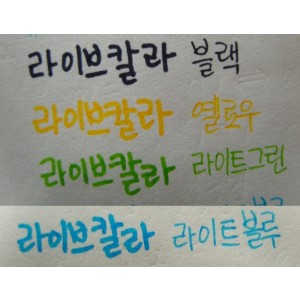 라이브칼라 블랙
라이브칼라 옐로우
라이브칼라 라이트그린
라이브칼라 라이트블루